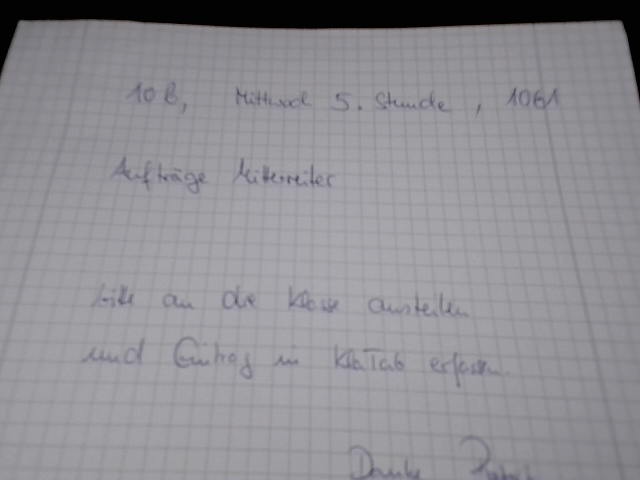 10B, Mittwoch 5. Stunde, 1061
Aufträge Mitterreiter
bitte an die Klasse austeilen
und Eintrag in KlaTab erfassen.
Danke